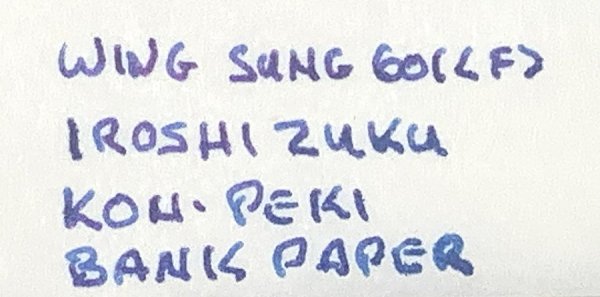 WING SUNG 601<F>
IROSHIZUKU
KON-PEKI
BANK PAPER